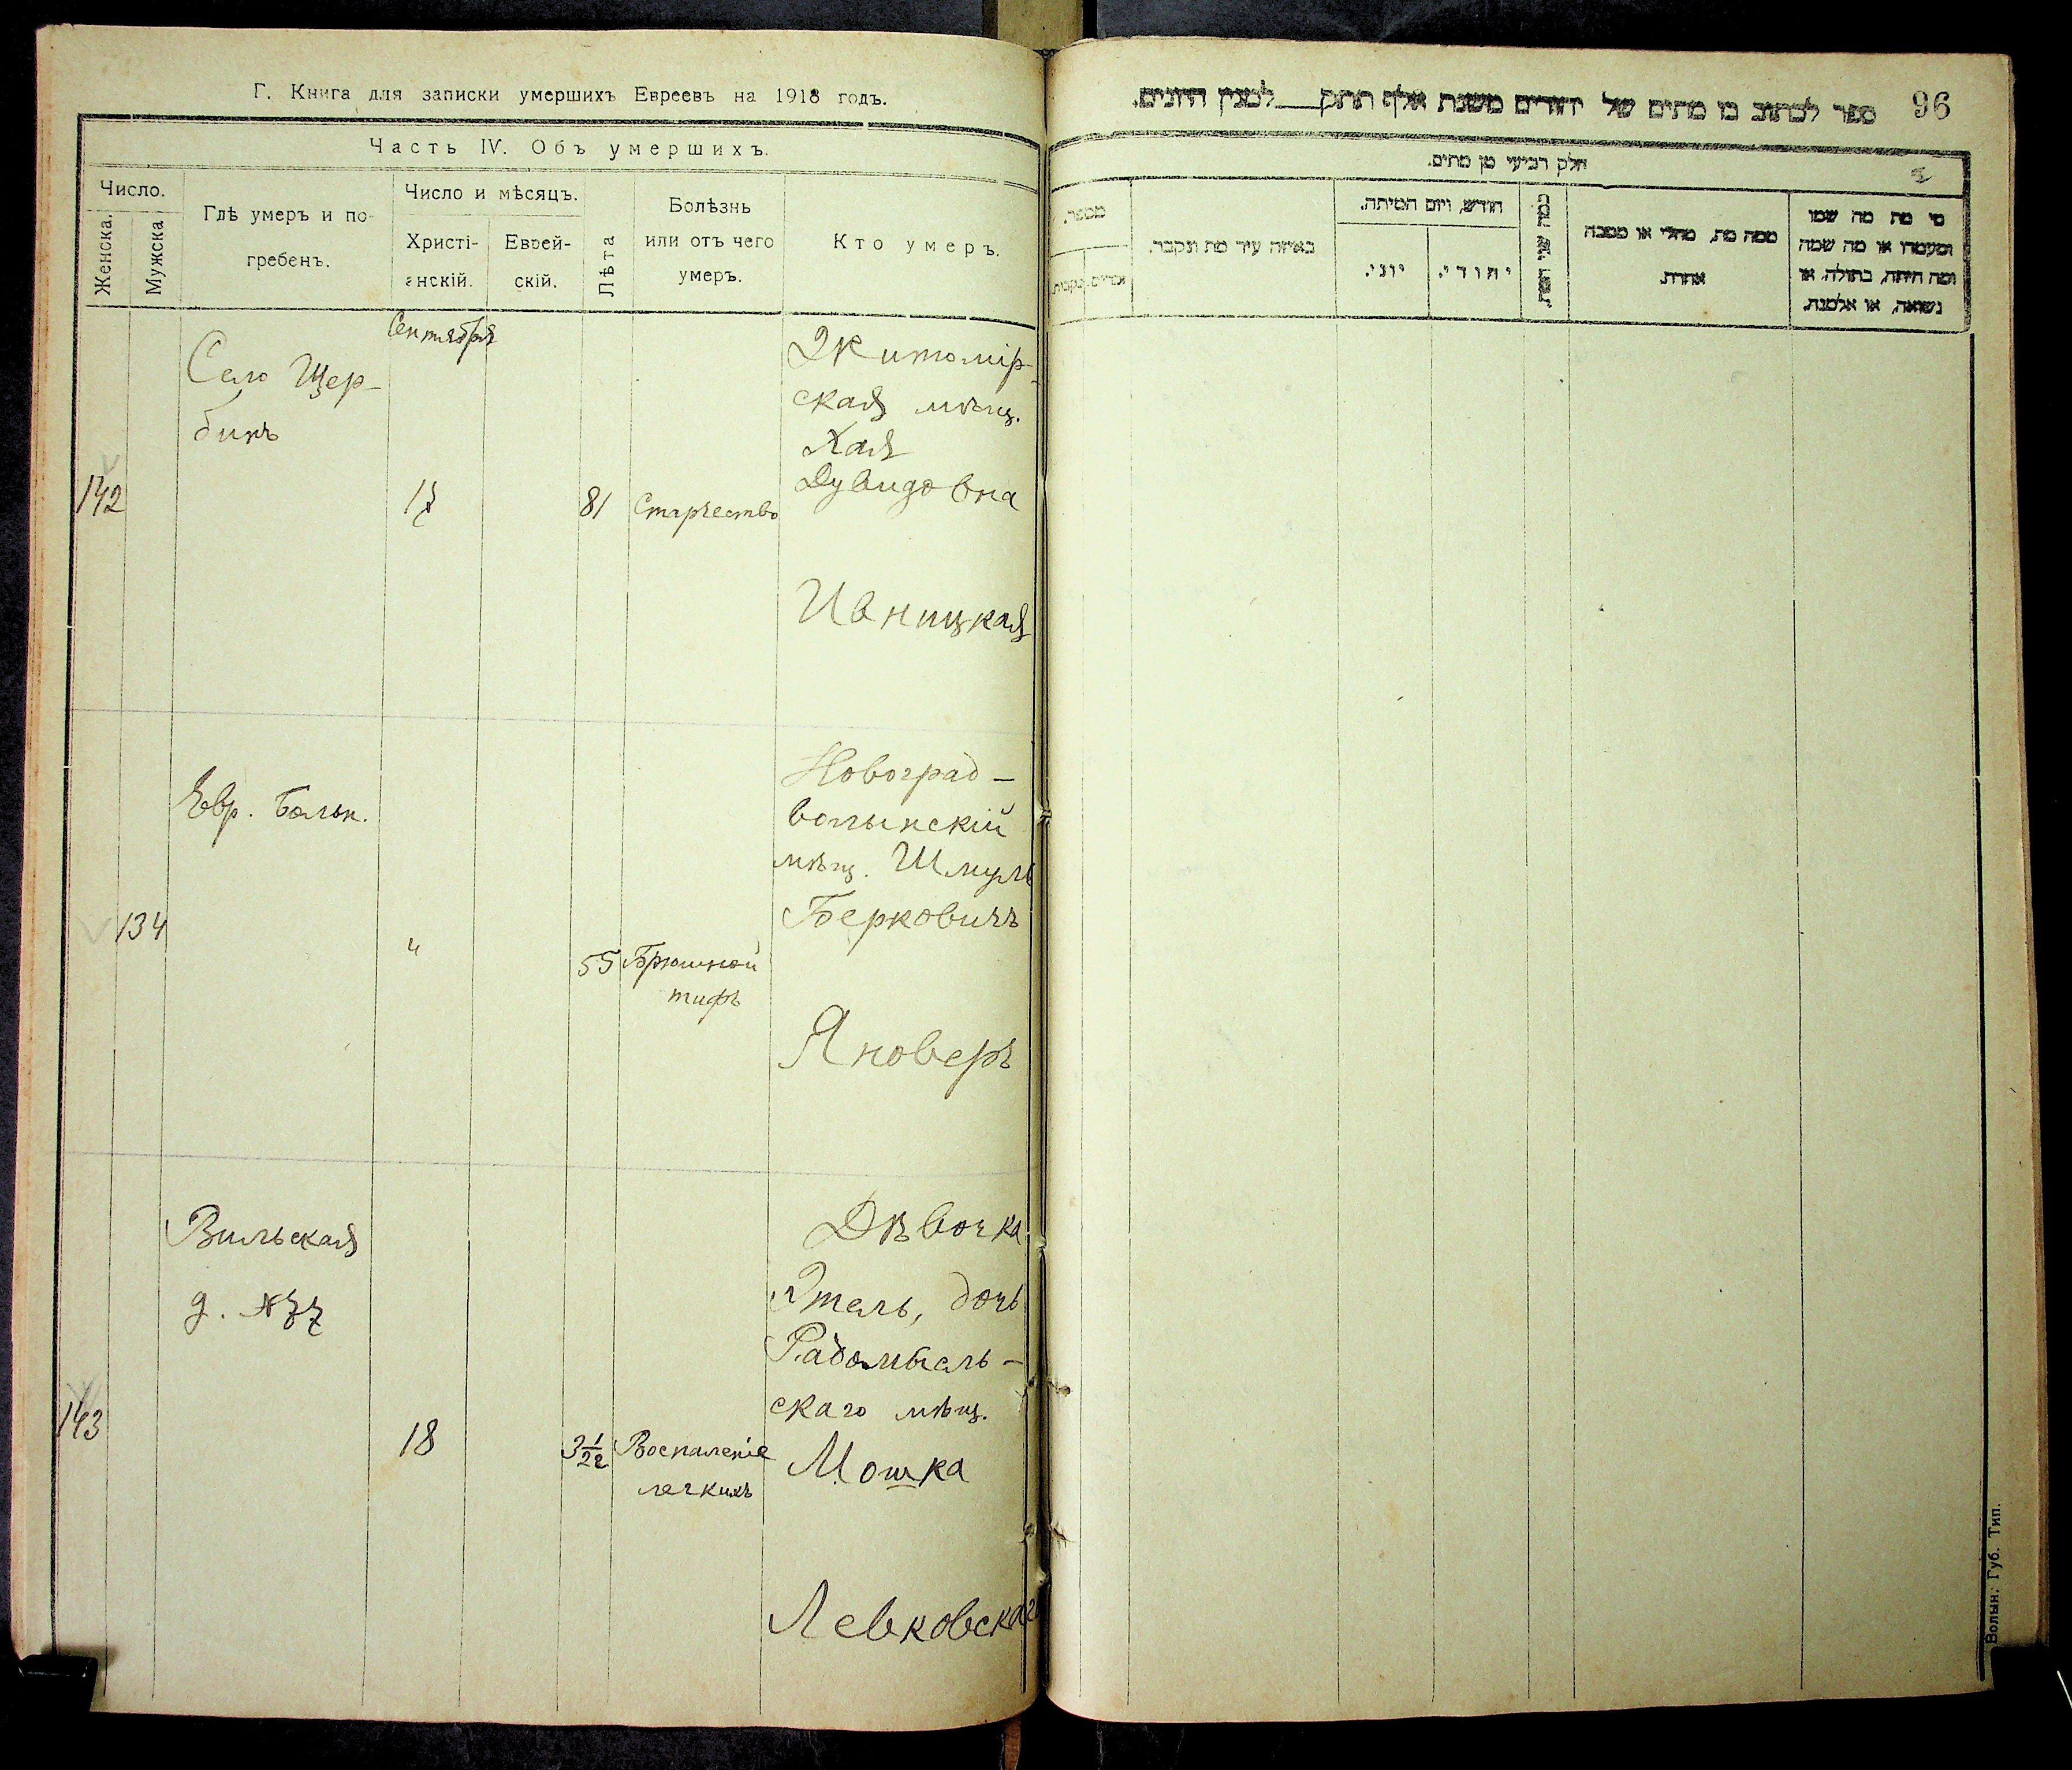 Г. Книга для записки умершихъ Евреевъ на 1918 годъ.
Часть IV. Объ умершихъ.
Число.
Женска.
Мужска
Гдѣ умеръ и по-
гребенъ.
Число и мѣсяцъ.
Христі-
анскій.
Еврей-
скій.
Лѣта
Болѣзнь
или отъ чего
умеръ.
Кто умеръ.
Сентября
142
Село Щер-
бинъ
17
81
Старчество
Житомір-
ская мѣщ.
Хая
Дувидовна
Ивницкая
134
Евр. Больн.
"
55
Брюшной
тифъ
Новоград-
волынскій
мѣщ. Шмуль
Берковичъ
Яноверъ
143
Вильская
д. №77
18
3 1/2
Воспаленіе
легкихъ
Дѣвочка
Этель, дочь
Радомысль-
скаго мѣщ.
Мошка
Левковскаго
96
ספר לכתוב בו מתים של יהודים משנת אלף תתק___למנין היונים.
חלק רביעי מן מתים.
מספר.
באיזה עיר מת ונקבר.
חודש, ויום המיתה.
יהודי.
יוני.
ממה מת, מחלי או מסבה
אחרת.
מי מת מה שמו
ומעמדו או מה שמה
ומה היתה, בתולה, או
נשואה, או אלמנה.
Волын. Губ. Тип.